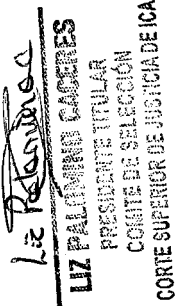 Liz Palomino C
LIZ PALOMINO CASERES
PRESIDENTE TITULAR
COMITÉ DE SELECCIÓN
CORTE SUPERIOR DE JUSTICIA DE ICA